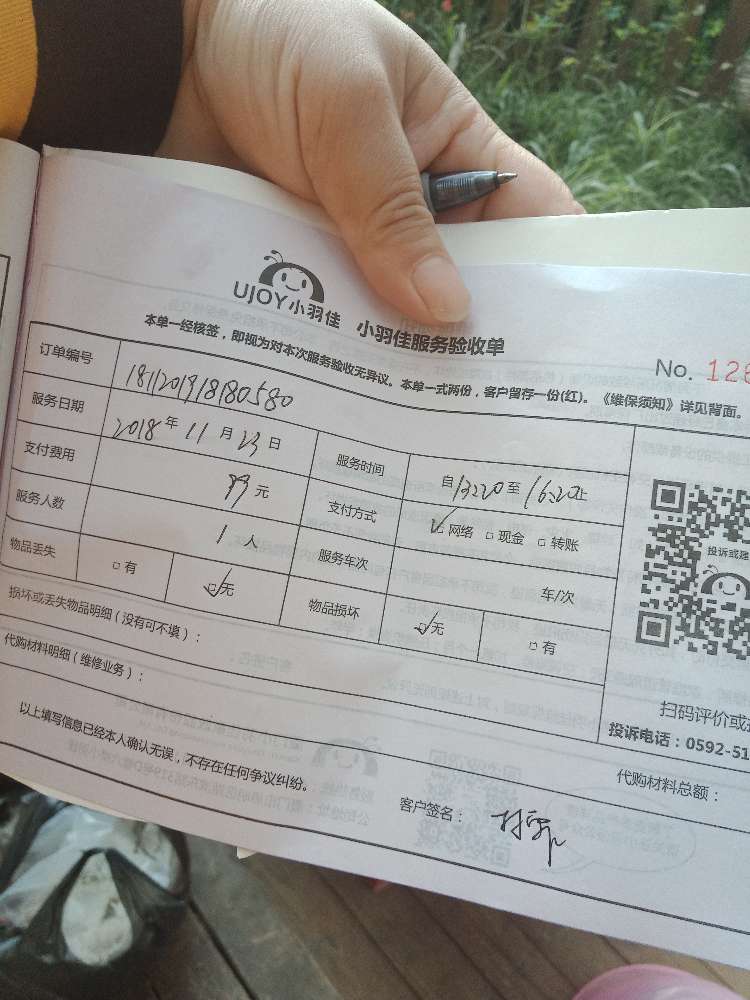 UJOY小羽佳 小羽佳服务验收单
本单一经核签，即视为对本次服务验收无异议。本单一式两份，客户留存一份(红)。《维保须知》详见背面。
No. 126
订单编号 181120191818​0580
服务日期 2018年11月23日 服务时间 自13:20至16:20止
支付费用 99元 支付方式 ☑网络 □现金 □转账
服务人数 1人 服务车次 车/次
物品丢失 □有 ☑无 物品损坏 ☑无 □有
损坏或丢失物品明细（没有可不填）：
代购材料明细（维修业务）：
投诉或建
扫码评价或
投诉电话：0592-51
代购材料总额：
以上填写信息已经本人确认无误，不存在任何争议纠纷。
客户签名：